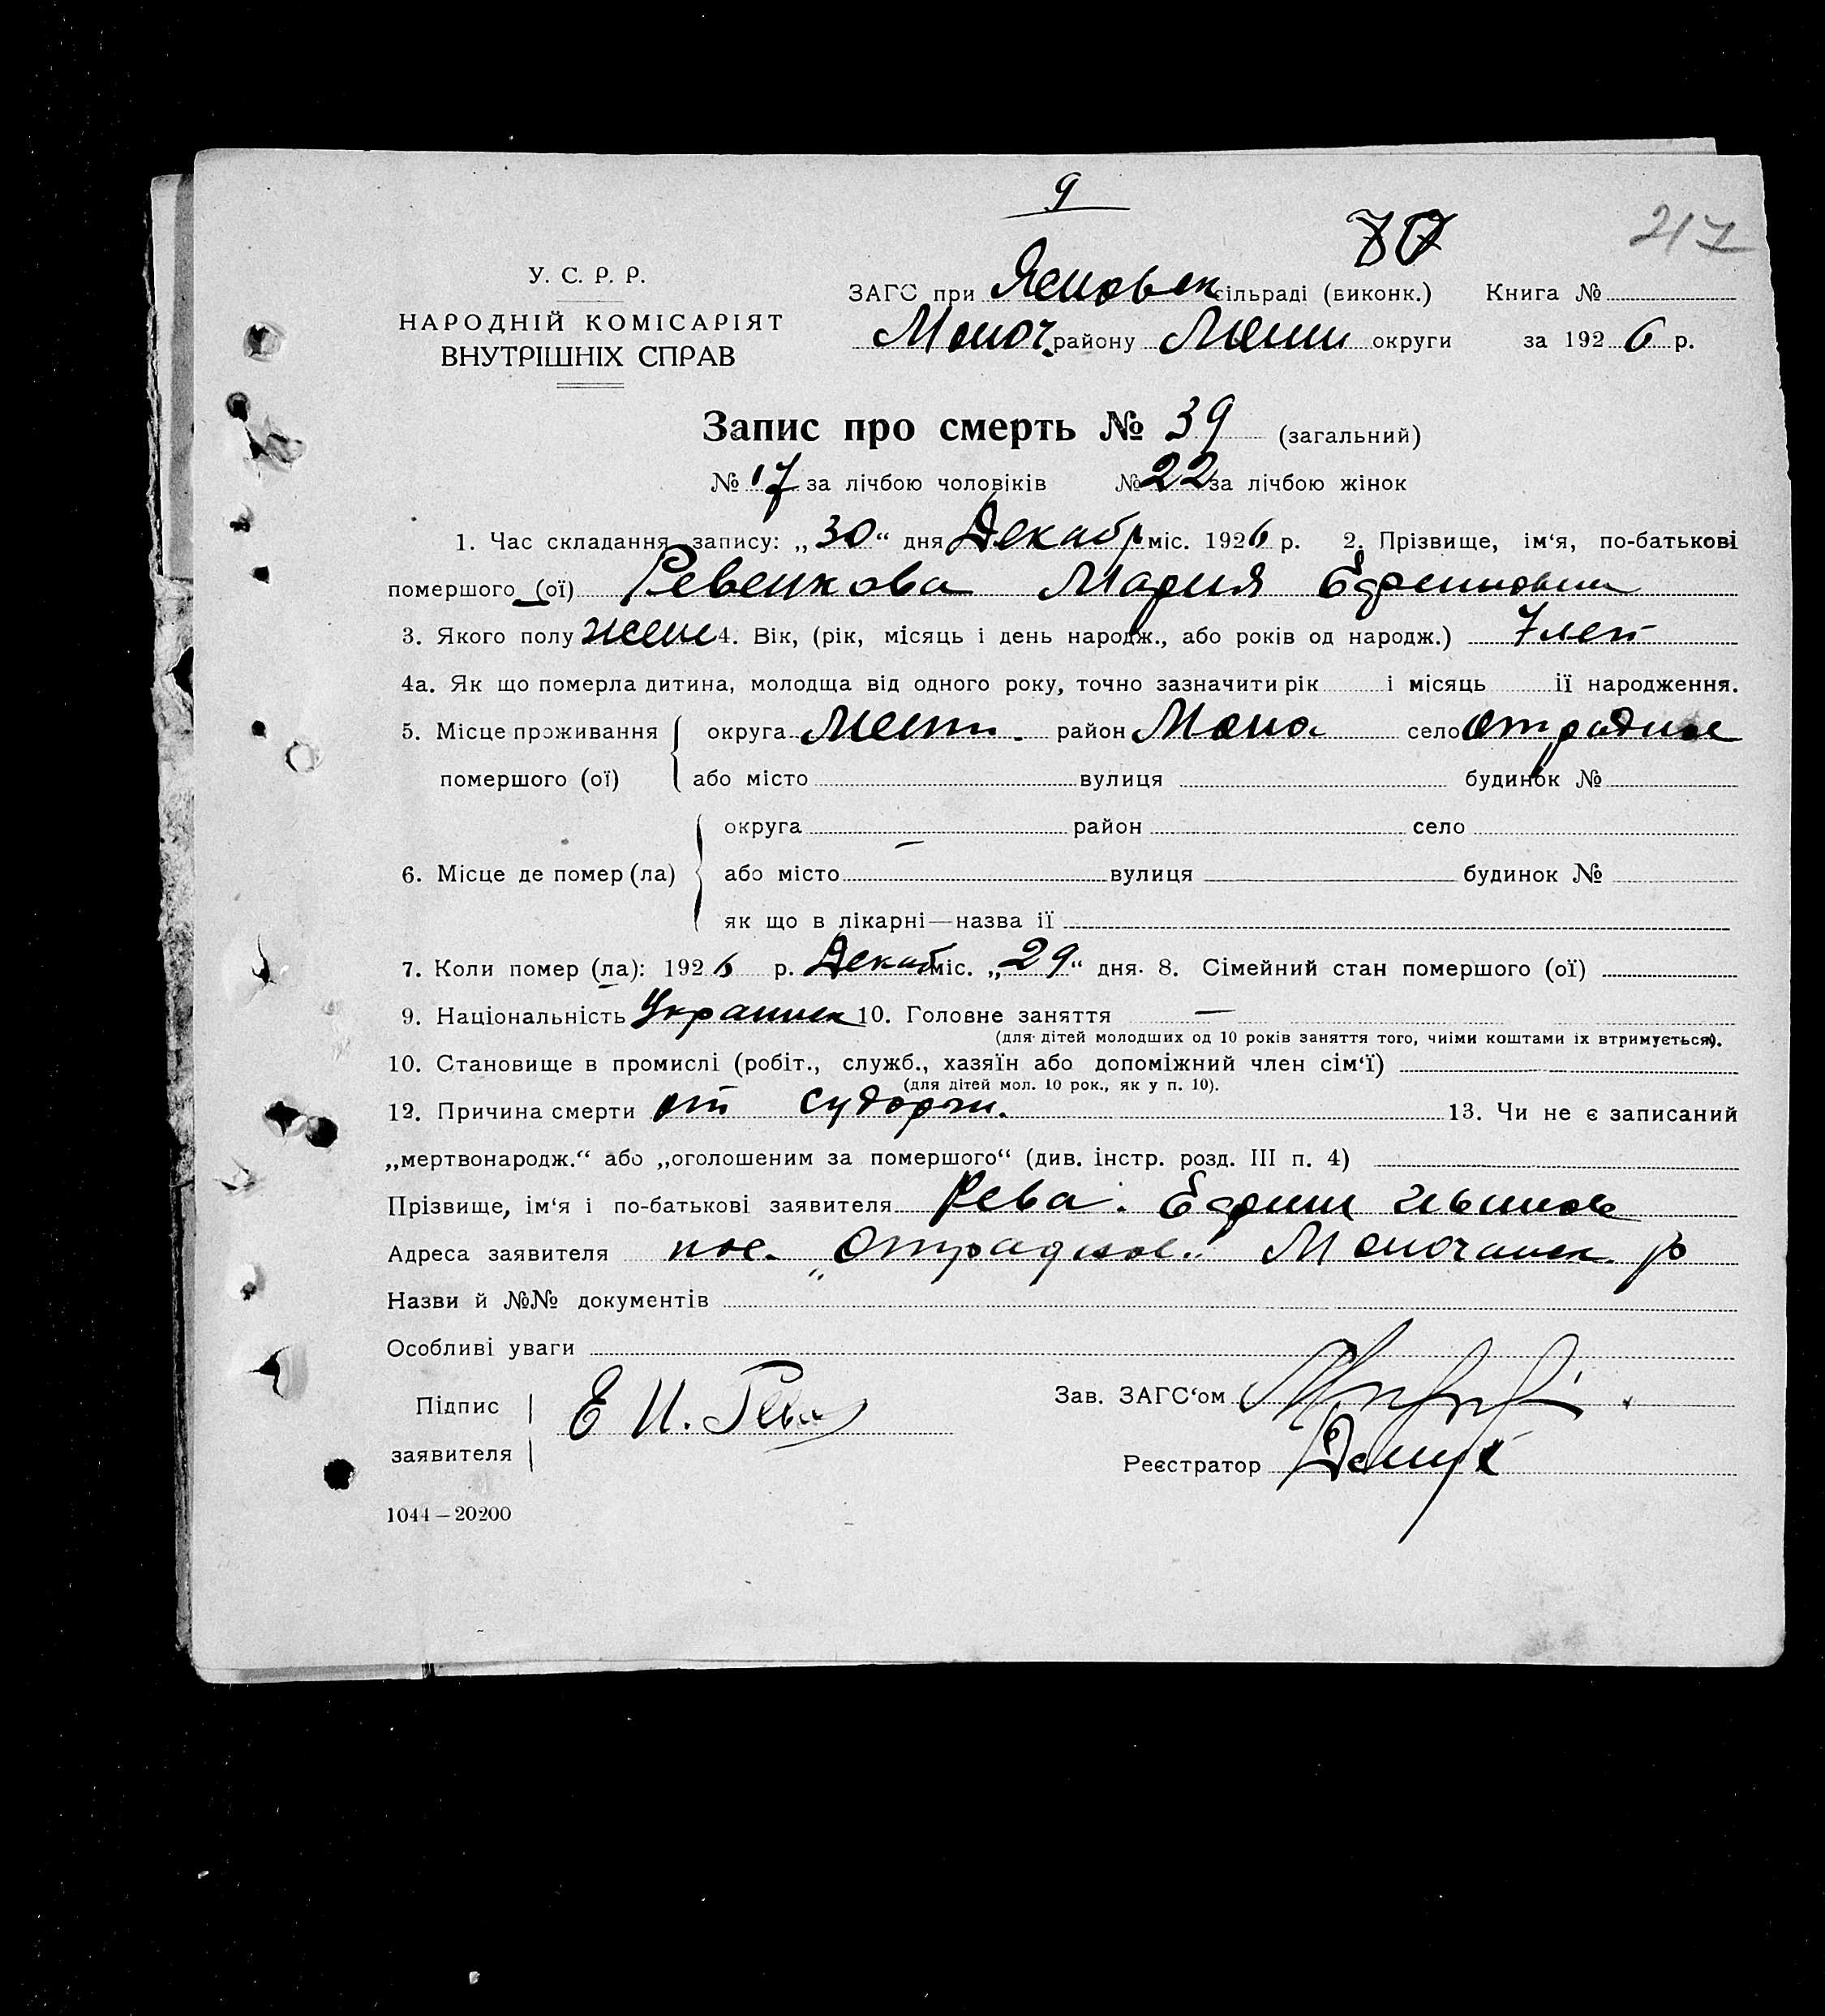 9
70
217
У. С. Р. Р.
НАРОДНІЙ КОМІСАРІЯТ
ВНУТРІШНІХ СПРАВ
ЗАГС при сільраді (виконк.) Книга №
району округи за 1926 р.
Запис про смерть № 39 (загальний)
№ 17 за лічбою чоловіків № 22 за лічбою жінок
1. Час складання запису: „30“ дня Декабр міс. 1926 р. 2. Прізвище, ім‘я, по-батькові
помершого (ої) Ревенкова Мария
3. Якого полу жен 4. Вік, (рік, місяць і день народж., або років од народж.) 7 лет
4а. Як що померла дитина, молодща від одного року, точно зазначити рік і місяць ії народження.
5. Місце проживання округа район село Отрадное
помершого (ої) або місто вулиця будинок №
округа район село
6. Місце де помер (ла) або місто — вулиця будинок №
як що в лікарні—назва ії
7. Коли помер (ла): 1926 р. Декаб міс. „29“ дня. 8. Сімейний стан помершого (ої)
9. Національність Украинск 10. Головне заняття —
(для дітей молодших од 10 років заняття того, чиїми коштами їх втримується).
10. Становище в промислі (робіт., служб., хазяїн або допоміжний член сім‘ї)
(для дітей мол. 10 рок., як у п. 10).
12. Причина смерти от судорги. 13. Чи не є записаний
„мертвонародж.“ або „оголошеним за помершого“ (див. інстр. розд. III п. 4)
Прізвище, ім‘я і по-батькові заявителя Рева.
Адреса заявителя пос. „Отрадное“ р
Назви й №№ документів
Особливі уваги
Підпис Е И. Рева Зав. ЗАГС‘ом
заявителя Реєстратор
1044—20200